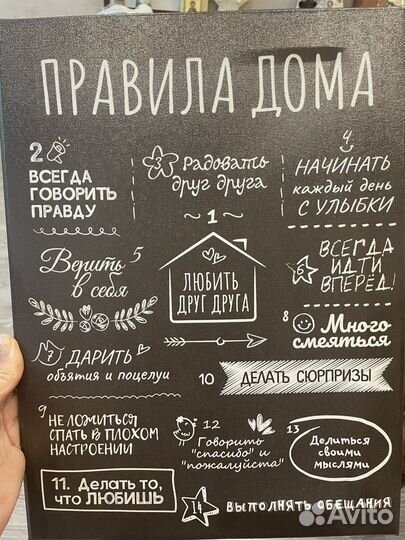 ПРАВИЛА ДОМА
2
ВСЕГДА
ГОВОРИТЬ
ПРАВДУ
3 Радовать
друг друга
4
НАЧИНАТЬ
каждый день
С УЛЫБКИ
~ 1 ~
ЛЮБИТЬ
ДРУГ ДРУГА
Верить 5
в себя
6
ВСЕГДА
ИДТИ
ВПЕРЁД!
7 ДАРИТЬ
объятия и поцелуи
8 Много
смеяться
9
НЕ ЛОЖИТЬСЯ
СПАТЬ В ПЛОХОМ
НАСТРОЕНИИ
10 ДЕЛАТЬ СЮРПРИЗЫ
11. Делать то,
что ЛЮБИШЬ
12
Говорить
"спасибо" и
"пожалуйста"
13
Делиться
своими
мыслями
14 ВЫПОЛНЯТЬ ОБЕЩАНИЯ
Avito